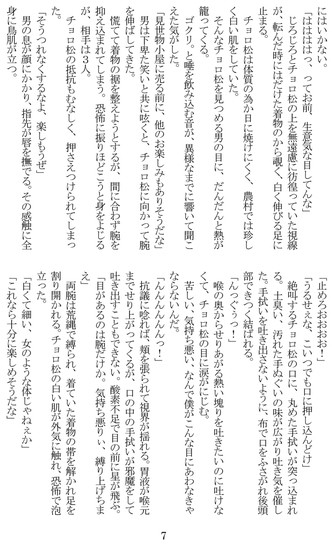 にはいかない。
「はははは、ってお前、生意気な目してんな」
じろじろとチョロ松の上を無遠慮に彷徨っていた視線
が、転んだ時にはだけた着物のから覗く、白く伸びる足に
止まる。
チョロ松は体質の為か日に焼けにくく、農村では珍し
く白い肌をしていた。
そんなチョロ松を見つめる男の目に、だんだんと熱が
籠ってくる。
ゴクリ。と唾を飲み込む音が、異様なまでに響いて聞こ
えた気がした。
「見世物小屋に売る前に、他のお楽しみもありそうだな」
男は下卑た笑いと共に呟くと、チョロ松に向かって腕
を伸ばしてきた。
慌てて着物の裾を整えようとするが、間に合わず腕を
抑え込まれてしまう。恐怖に振りほどこうと身をよじる
が、相手は３人。
チョロ松の抵抗もむなしく、押さえつけられてしまっ
た。
「そうつれなくするなよ、楽しもうぜ」
男の息が顔にかかり、指先が唇を撫でる。その感触に全
身に鳥肌が立つ。
「止めろおおおお！」
「うるせぇな、こいつでも口に押し込んどけ」
絶叫するチョロ松の口に、丸めた手拭いが突っ込まれ
る。土臭い、汚れた手ぬぐいの味が広がり吐き気を催し
た。手拭いを吐き出さないように、布で口をふさがれ後頭
部できつく結ばれる。
「んっぐぅっ！」
喉の奥からせりあがる熱い塊りを吐きたいのに吐けな
くて、チョロ松の目に涙がにじむ。
苦しい、気持ち悪い、なんで僕がこんな目にあわなきゃ
ならないんだ。
「んんんんんっ！」
抗議に唸れば、頬を張られて視界が揺れる。胃液が喉元
までせり上がってくるが、口の中の手拭いが邪魔をして
吐き出すこともできない。酸素不足で目の前に星が飛ぶ。
「目があるのは腕だけか。気持ち悪りぃ、縛り上げちま
え」
両腕は荒縄で縛られ、着ていた着物の帯を解かれ足を
割り開かれる。チョロ松の白い肌が外気に触れ、恐怖で泡
立った。
「白くて細い、女のような体じゃねぇか」
「これなら十分に楽しめそうだな」
7